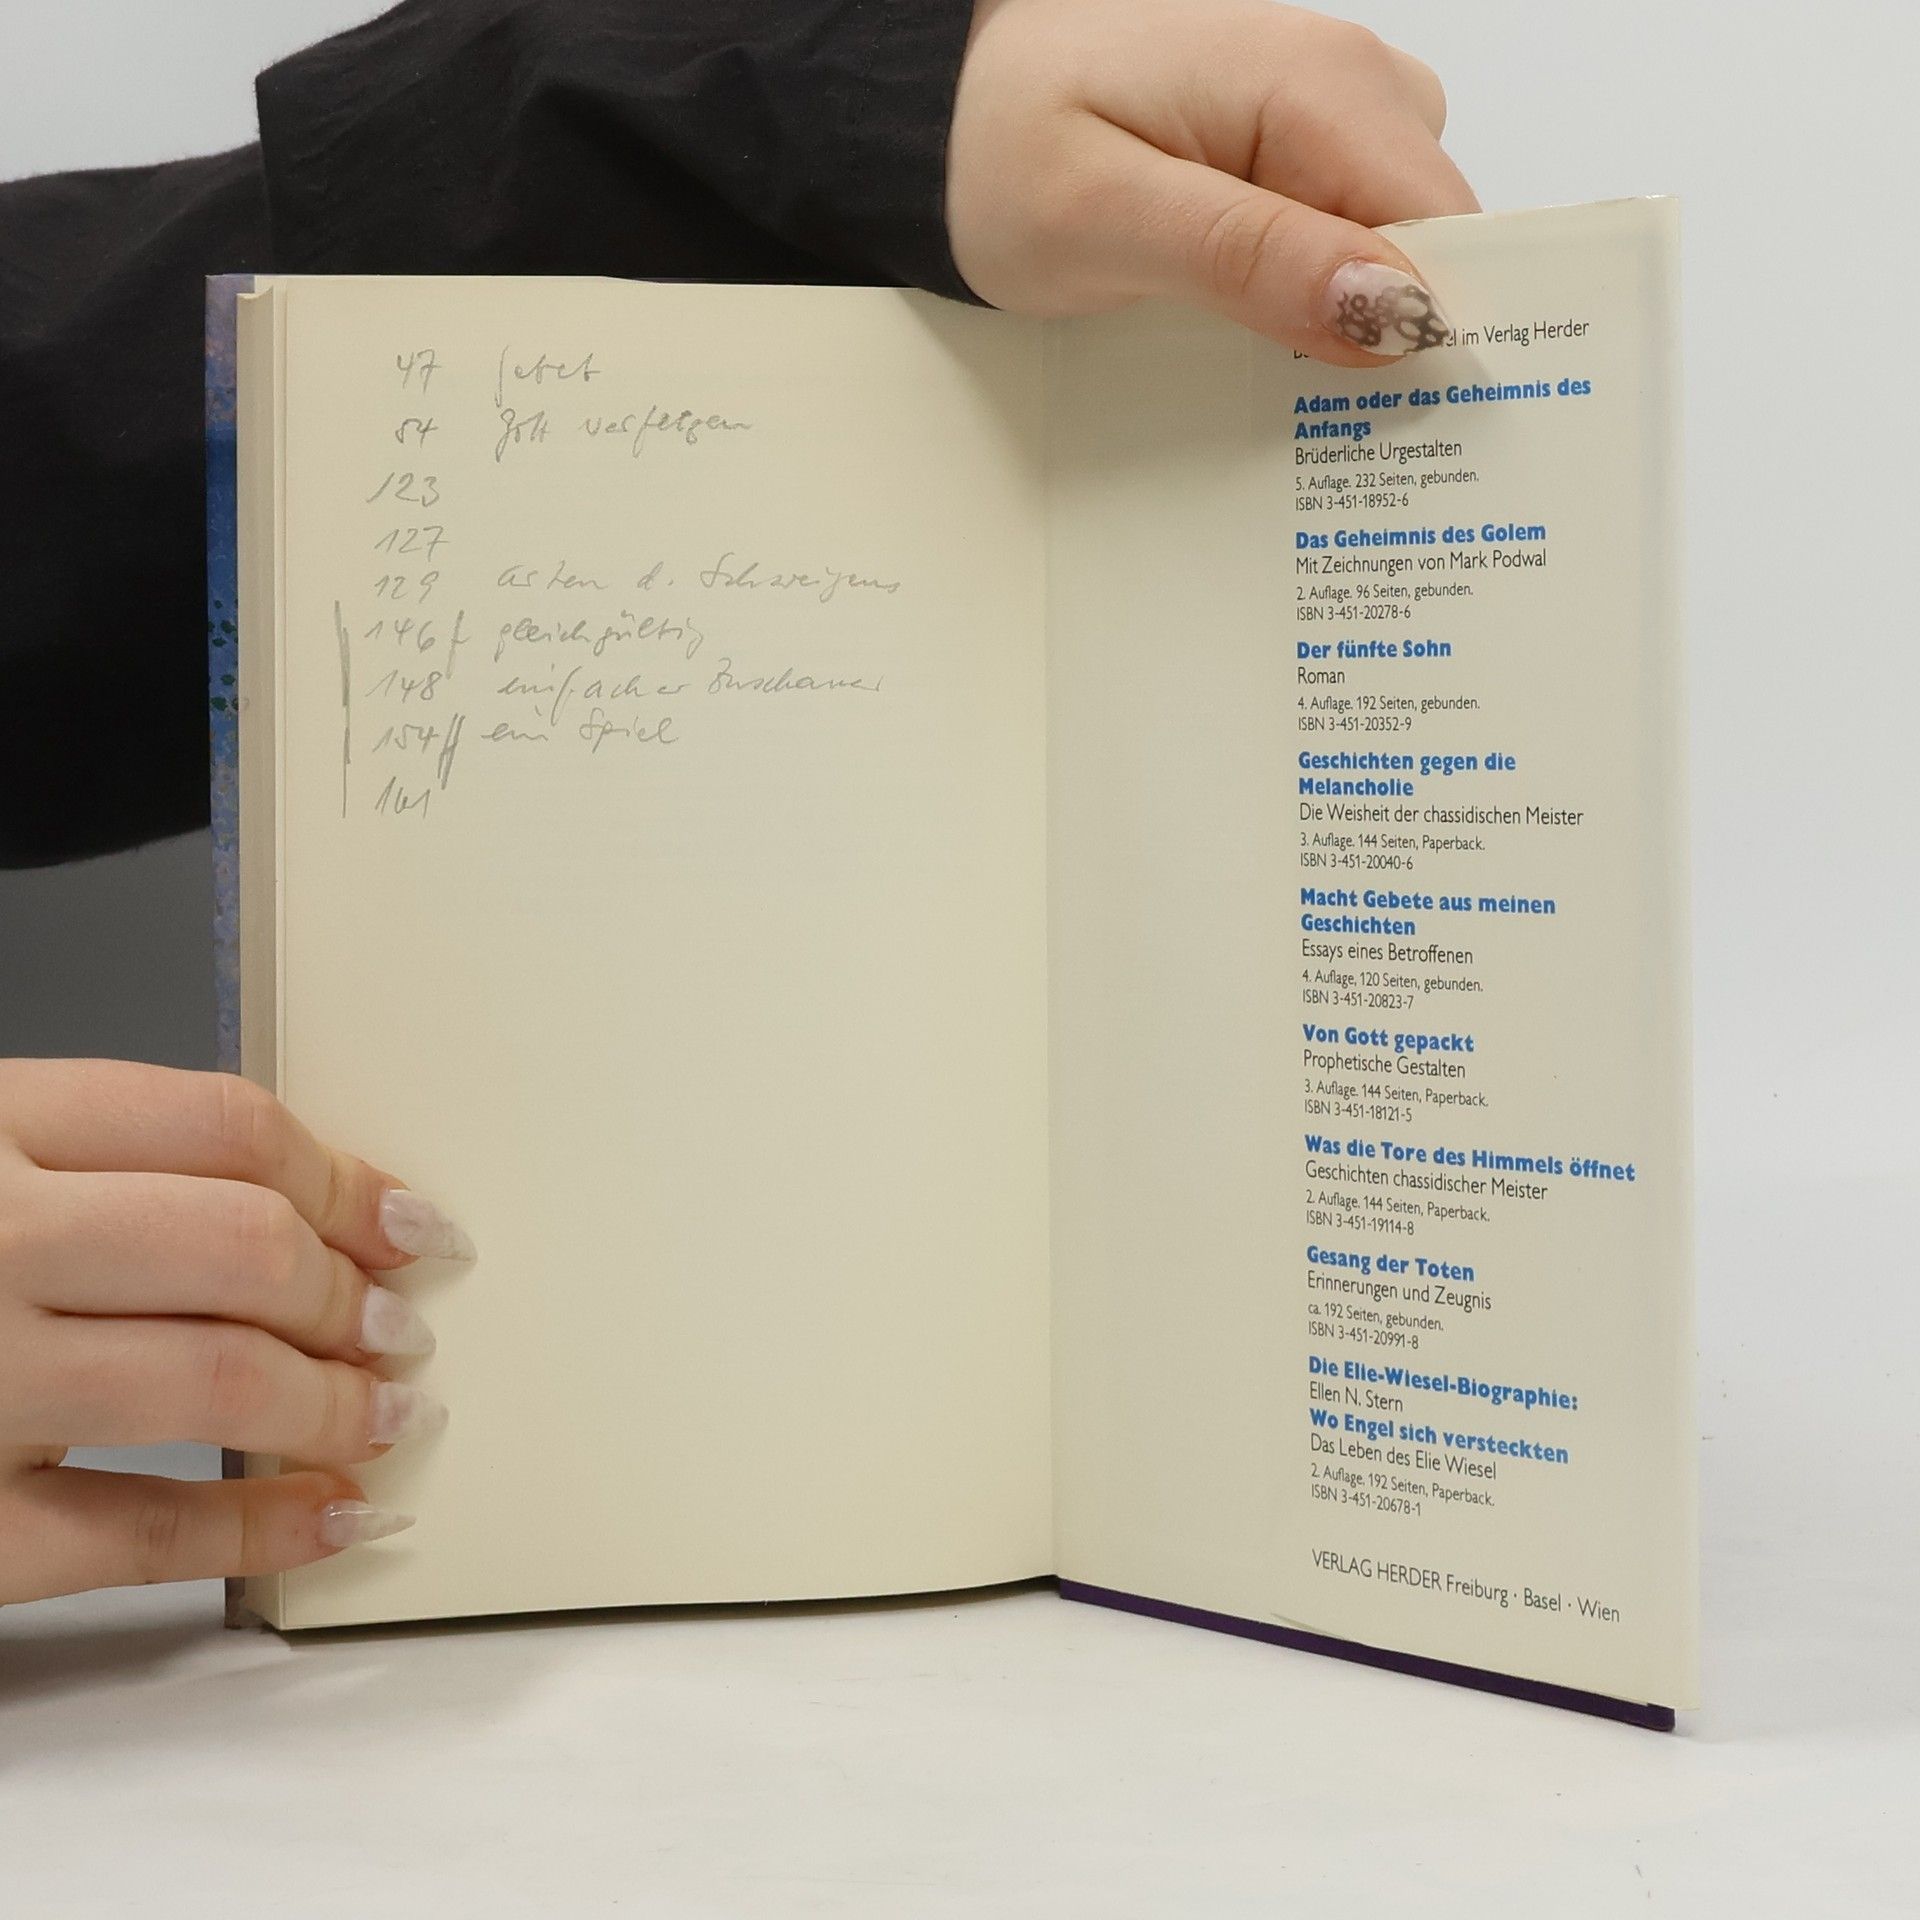 47 Gebet
84 Gott verfolgen
123
127
129 Arten d. Schweigens
146 f gleichgültig
148 einfacher Zuschauer
154 ff ein Spiel
161
im Verlag Herder
Adam oder das Geheimnis des
Anfangs
Brüderliche Urgestalten
5. Auflage. 232 Seiten, gebunden.
ISBN 3-451-18952-6
Das Geheimnis des Golem
Mit Zeichnungen von Mark Podwal
2. Auflage. 96 Seiten, gebunden.
ISBN 3-451-20278-6
Der fünfte Sohn
Roman
4. Auflage. 192 Seiten, gebunden.
ISBN 3-451-20352-9
Geschichten gegen die
Melancholie
Die Weisheit der chassidischen Meister
3. Auflage. 144 Seiten, Paperback.
ISBN 3-451-20040-6
Macht Gebete aus meinen
Geschichten
Essays eines Betroffenen
4. Auflage, 120 Seiten, gebunden.
ISBN 3-451-20823-7
Von Gott gepackt
Prophetische Gestalten
3. Auflage. 144 Seiten, Paperback.
ISBN 3-451-18121-5
Was die Tore des Himmels öffnet
Geschichten chassidischer Meister
2. Auflage. 144 Seiten, Paperback.
ISBN 3-451-19114-8
Gesang der Toten
Erinnerungen und Zeugnis
ca. 192 Seiten, gebunden.
ISBN 3-451-20991-8
Die Elie-Wiesel-Biographie:
Ellen N. Stern
Wo Engel sich versteckten
Das Leben des Elie Wiesel
2. Auflage. 192 Seiten, Paperback.
ISBN 3-451-20678-1
VERLAG HERDER Freiburg · Basel · Wien